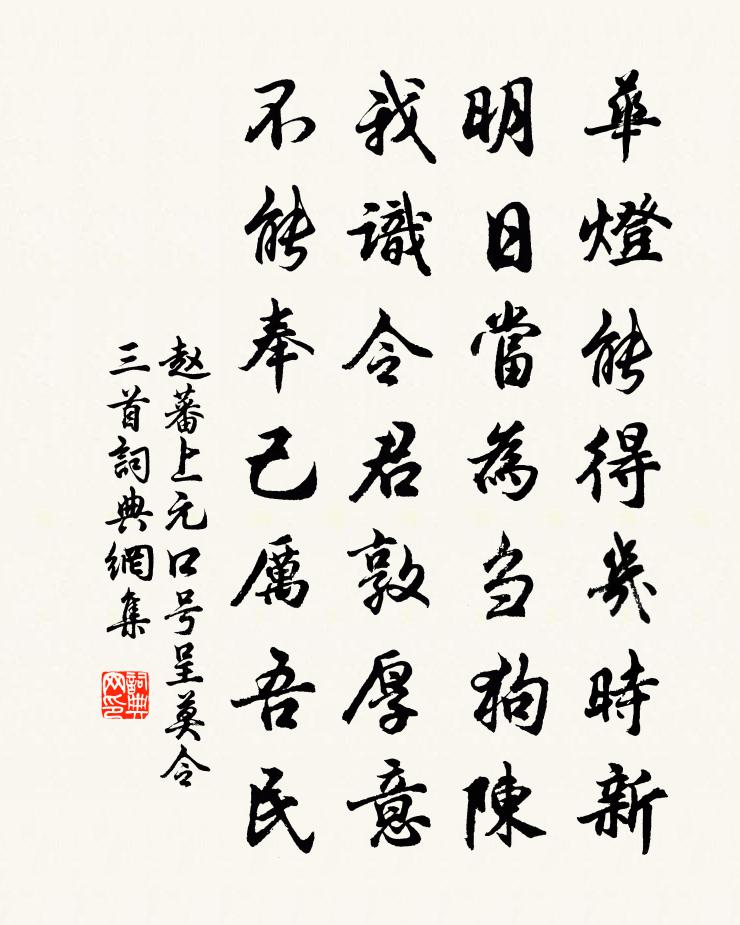 華燈能得幾時新
明日當為刍狗陳
我識令君敦厚意
不能奉己厲吾民
赵蕃上元口号呈莫令
三首詞典網集
詞典网印